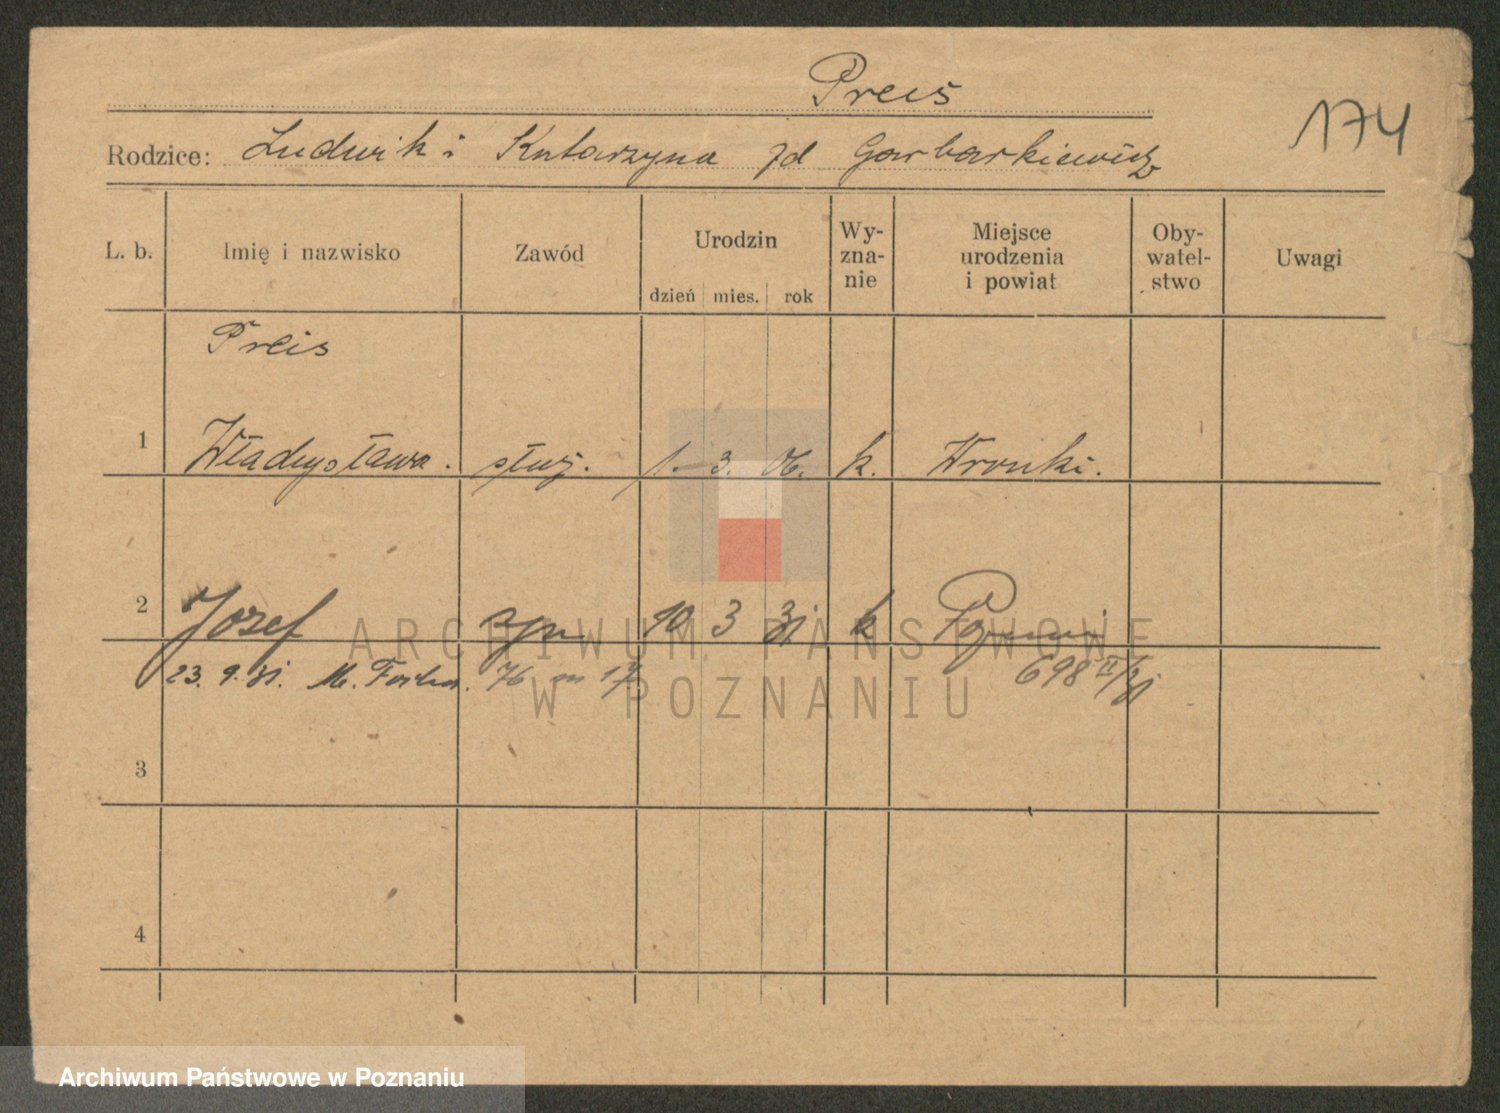 Preis
174
Rodzice: Ludwik i Katarzyna zd Garbarkiewicz
L. b. Imię i nazwisko Zawód Urodzin dzień mies. rok Wy-zna-nie Miejsce urodzenia i powiat Oby-watel-stwo Uwagi
Preis
1 Władysława. służ. 1. 3. 06. k. Wronki.
2 Józef syn 10 3 31 k
23. 9. 31. 76 m 17 698 II/31
3
4
ARCHIWUM PAŃSTWOWE
W POZNANIU
Archiwum Państwowe w Poznaniu